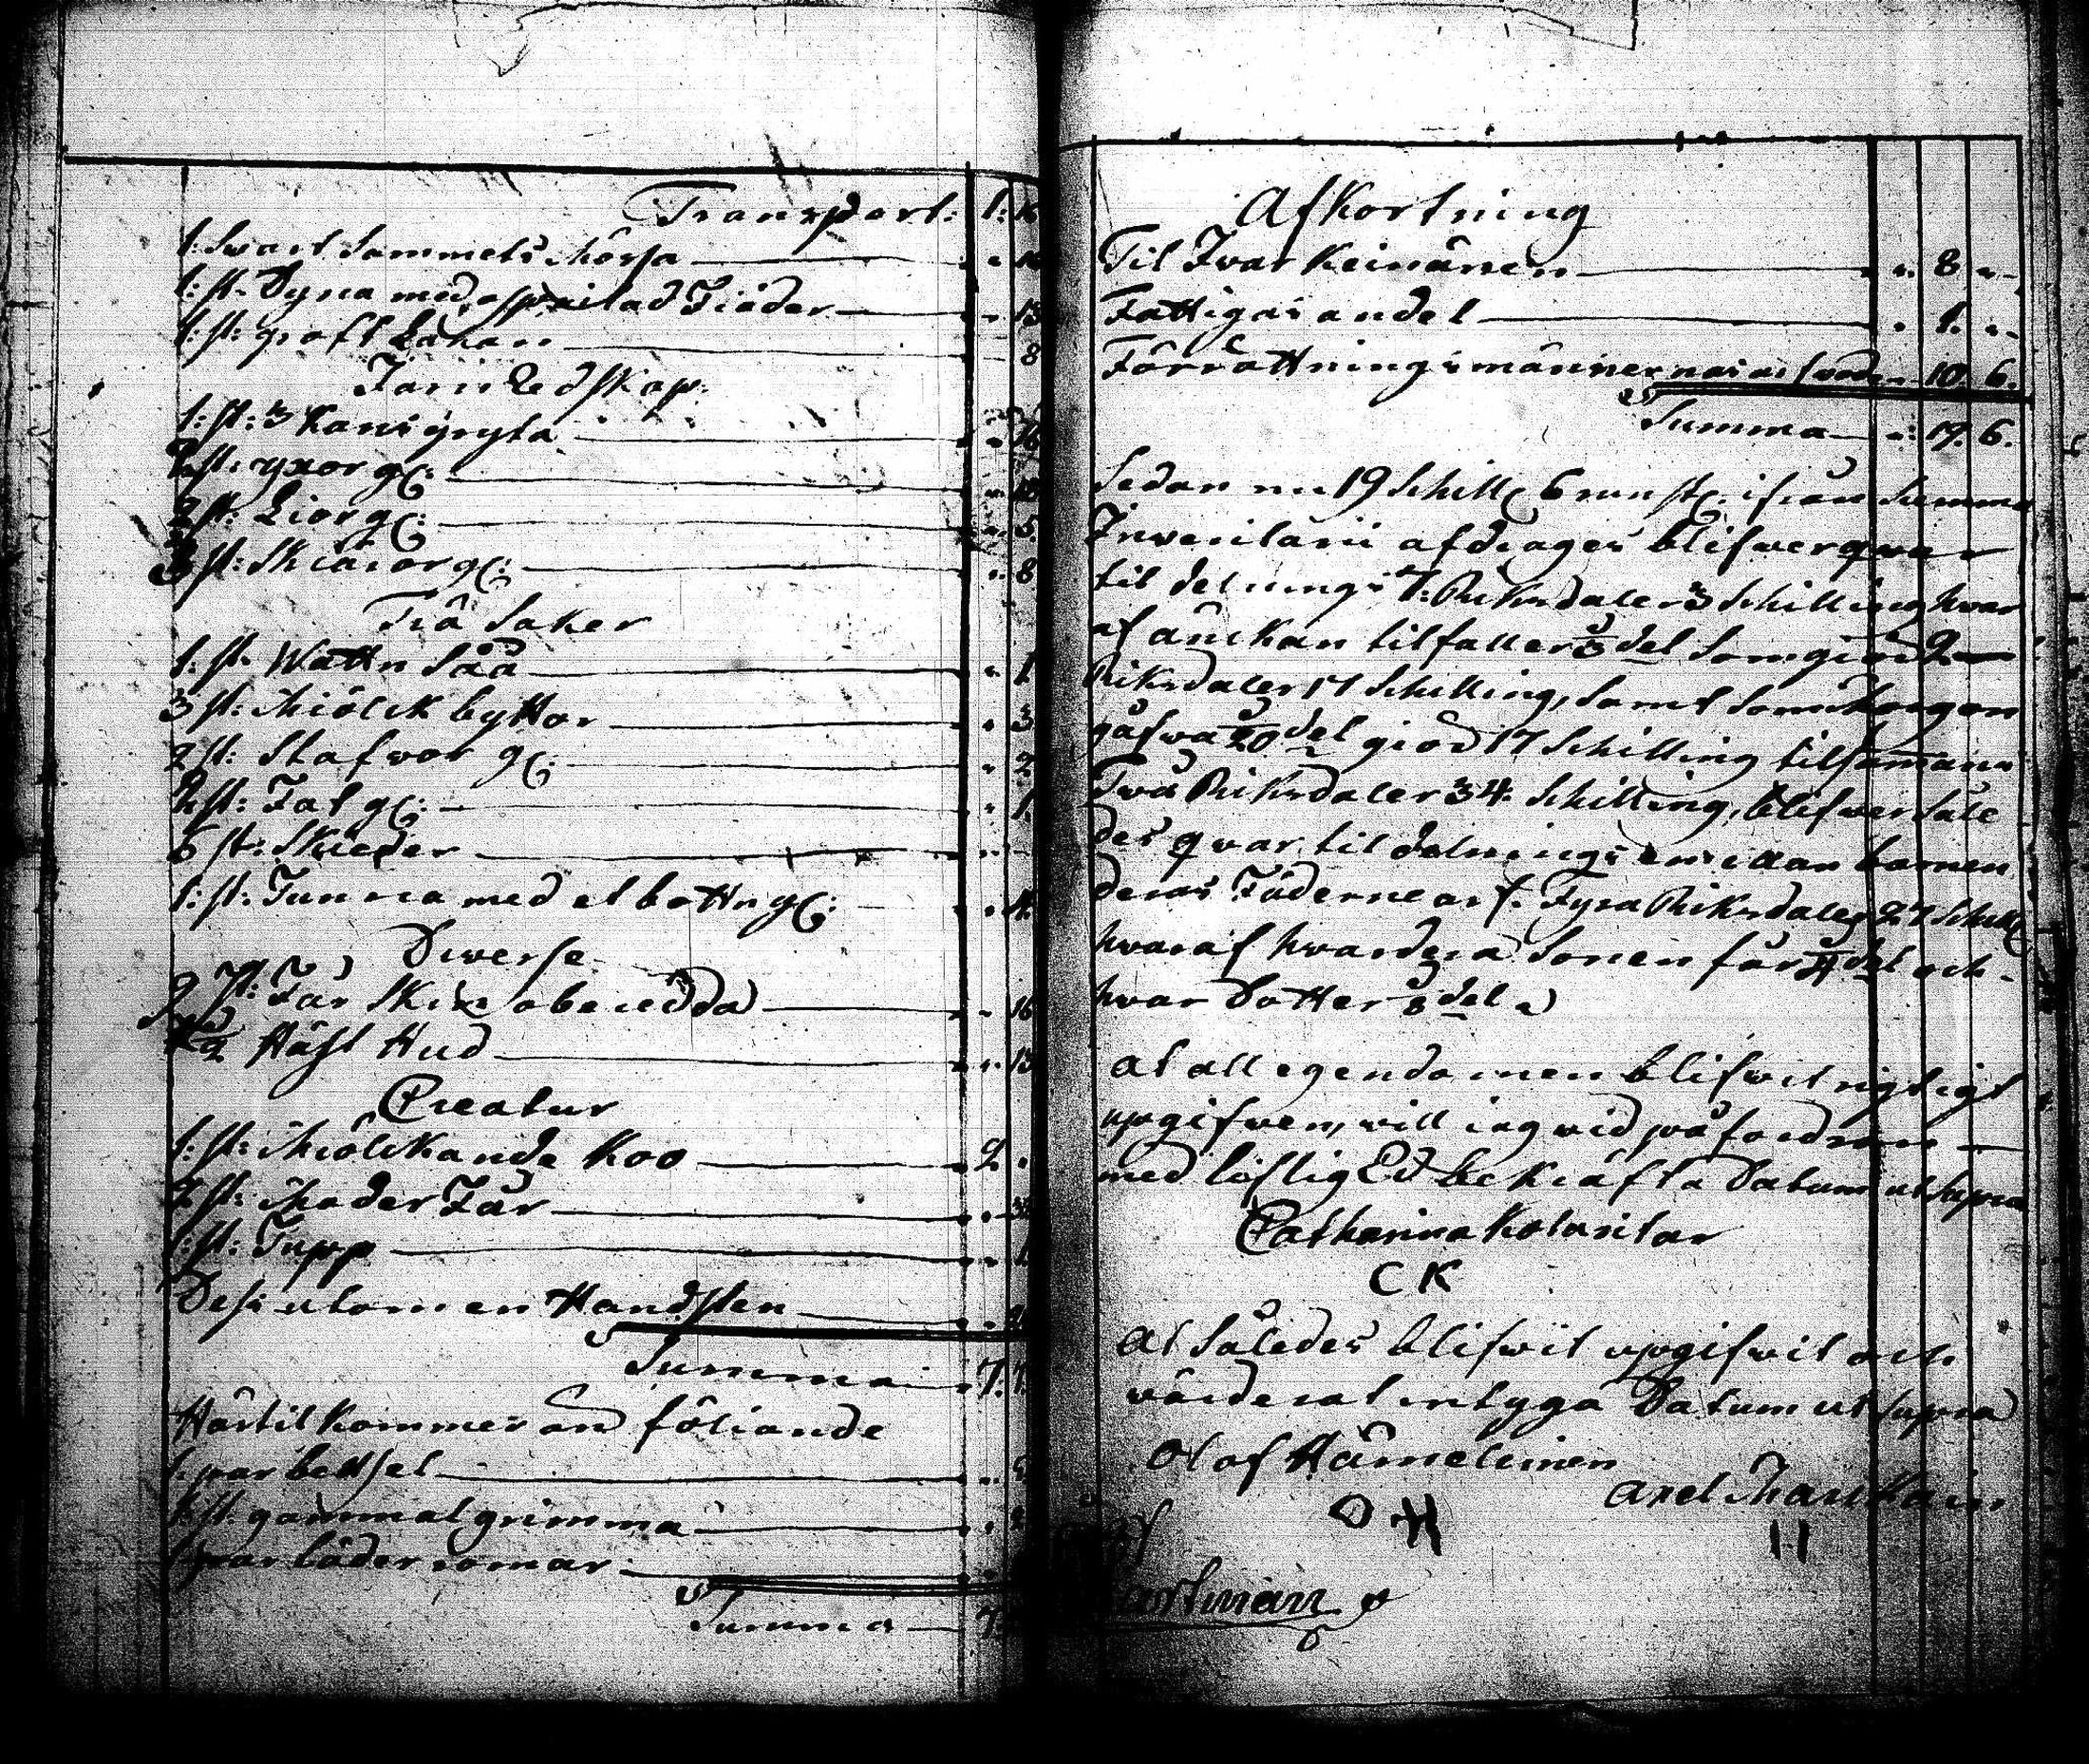 Transport: 1: 16
1: Swart Sammets Mössa — " 16
1: st. Dyna med spritad Fiäder — " 13
1: st: groft Lakan — 8
Jern Redskap:
1: st: 3 Kans gryta — " 16
2 st: yxor g: — " 10
2 st: Liorg: — " 5
3 st: Skiäror g: — " 8
Trä Saker
1: st. Wattn Såå — " 1
3 st: Miölck byttor — " 3
2 st: Stafwor g: — " 2
2 st: Fat g: — " 1.
6 st: Skieder — "
1: st: Tunna med et bottn g: — " 4
Diverse
2 st: Får Skin oberedda — " 16
1/2 Häst Hud — " 13
Creatur
1: st: Miölckande Koo — 2 "
2 st: Moder Får —
1: st: Tupp — " 1
Dess utom en Handsten —
Summa — 7:
Härtil kommer än föliande
1. par bettsel —
1: st: gammal grimma —
1 par läder romar —
Summa — 7
Afkortning
Til Ivar Keinänen — " 8 "
Fattigas andel — " 1. "
Förrättningsmännernas arfvode " 10. 6.
Summa — " 19. 6.
Sedan nu 19 Schill 6 runst: ifrån Summa
Inventarii afdrages blifwer qwar
til delnings 7: Riksdaler 3 Schilling hwar
af änckan tilfaller 1/3 del som giör 2
Riksdaler 17 Schilling, samt som Morgon
gåfwa 1/20 del giör 17 Schilling tilsamans
Twå Riksdaler 34. Schilling, blifwer såle
des qwar til delnings emellan barnen
deras Fäderne arf. Fyra Riksdaler 27 Schill
hwaraf hwardera Sonen får 1/4 del och
hwar Dotter 1/8 del
At all egendomen blifwit rigtigt
upgifwen, will iag wid påfordran
med lijflig Ed bekräfta Datum ut supra
Catharina Kotanitar
C K
At således blifwit upgifwit och
wärderat intyga Datum ut supra
Olof Hämeleinen
Axel
O H